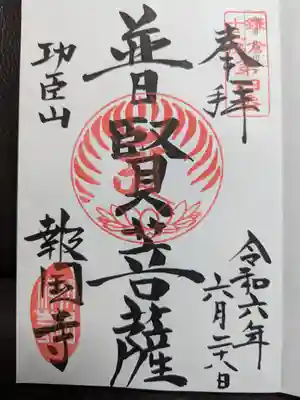 奉拝
令和六年
六月二十八日
普賢菩薩
功臣山
報国寺